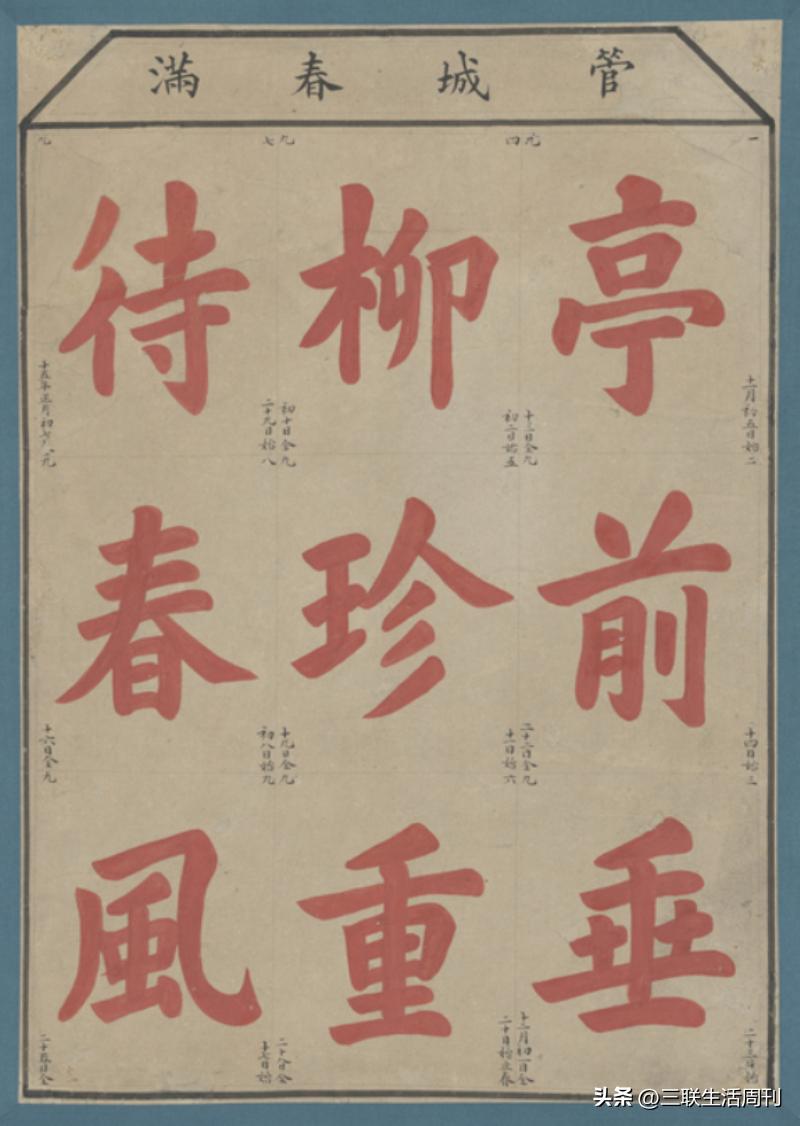 管城春滿
一
亭
十一月初五日始二
前
十四日始三
垂
二十三日始
九
四
柳
十三日全九
初二日始五
珍
二十二日全九
十一日始六
重
十二月初一日全
二十日始立春
九
七
待
初十日全九
二十九日始八
春
十九日全九
初八日始九
風
二十八日全
十七日始
九
十五年正月初七八九
十六日全九
二十五日全
头条 @三联生活周刊